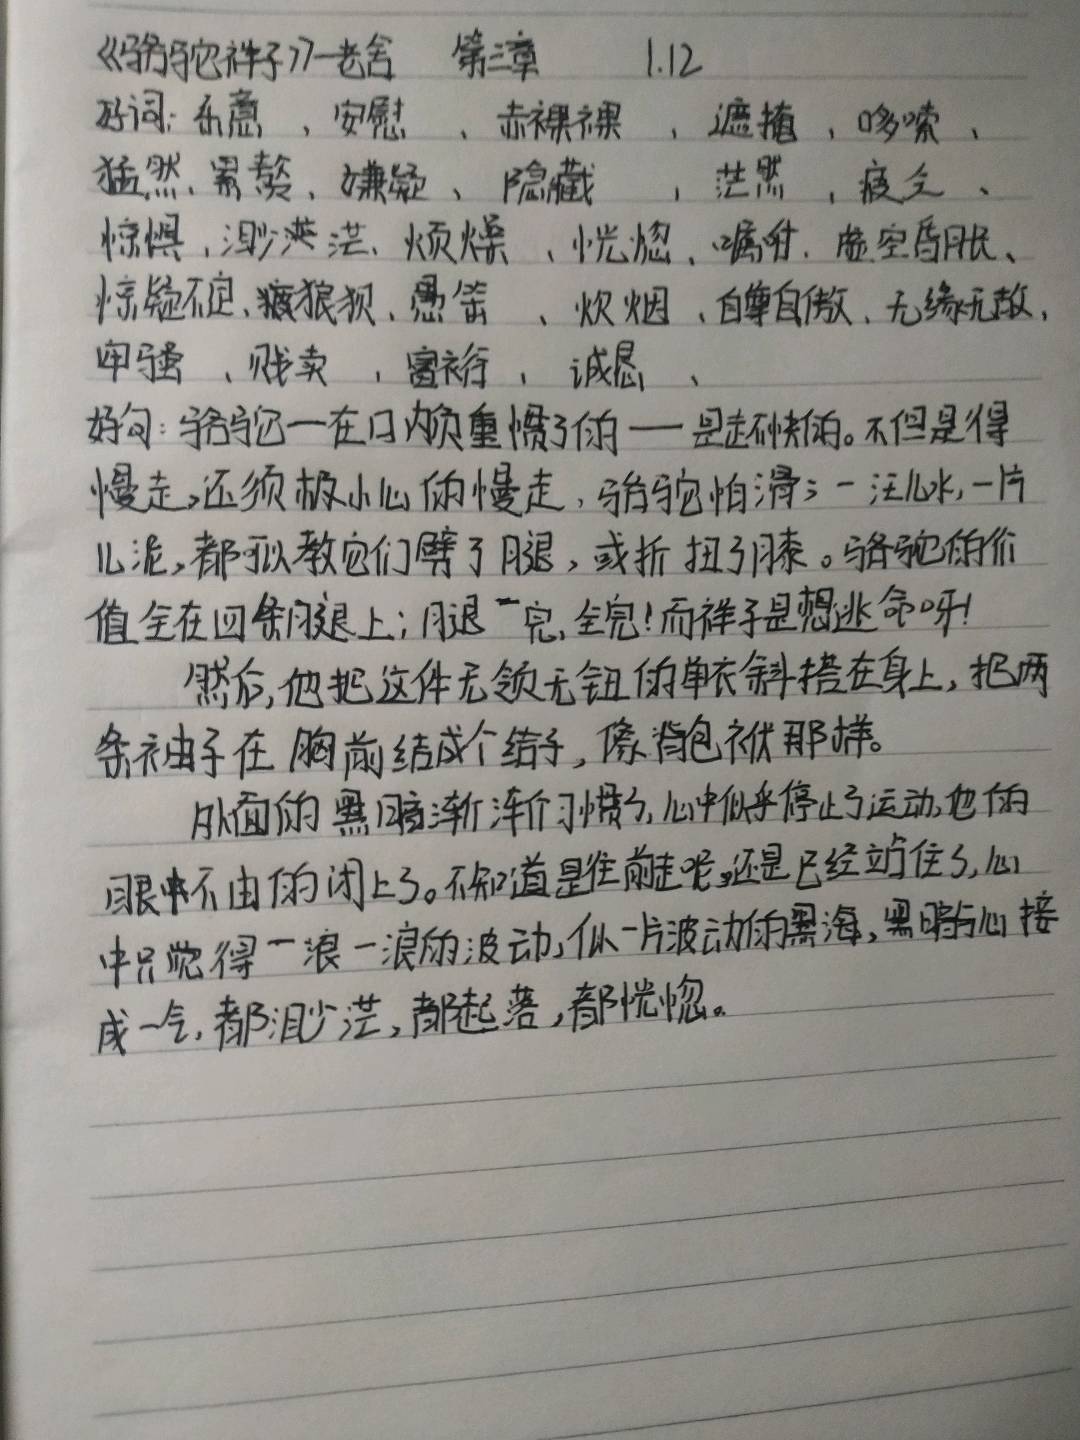 《骆驼祥子》—老舍 第三章 1.12
好词: 乐意、安慰、赤裸裸、遮掩、哆嗦、
猛然、累赘、嫌疑、隐藏、茫然、疲乏、
惊惧、渺渺茫茫、烦燥、恍惚、嘱咐、虚空昏胀、
惊疑不定、疲狼狈、愚笨、炊烟、自尊自傲、无缘无故、
牢骚、贱卖、富裕、诚恳、
好句: 骆驼—在口内负重惯了的——是走不快的。不但是得
慢走,还须极小心的慢走,骆驼怕滑;一汪儿水,一片
儿泥,都可以教它们劈了腿,或折扭了膝。骆驼的价
值全在四条腿上;腿一完,全完!而祥子是想逃命呀!
然后,他把这件无领无钮的单衣斜搭在身上,把两
条袖子在胸前结成个结子,像背包袱那样。
外面的黑暗渐渐习惯了,心中似乎停止了运动,他的
眼不由的闭上了。不知道是往前走呢,还是已经站住了,心
中只觉得一浪一浪的波动,似一片波动的黑海,黑暗与心接
成一气,都渺茫,都起落,都恍惚。